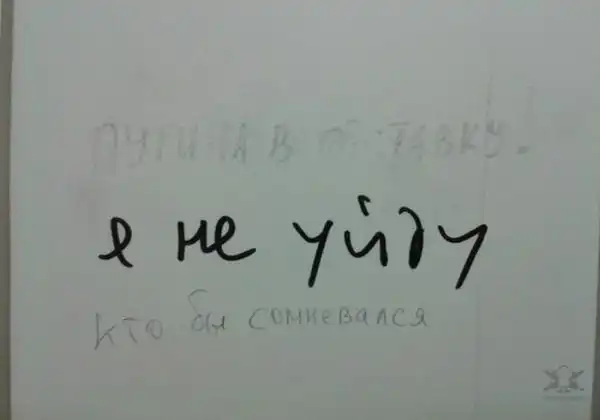 ПУТИНА В ОТСТАВКУ!
я не уйду
кто бы сомневался